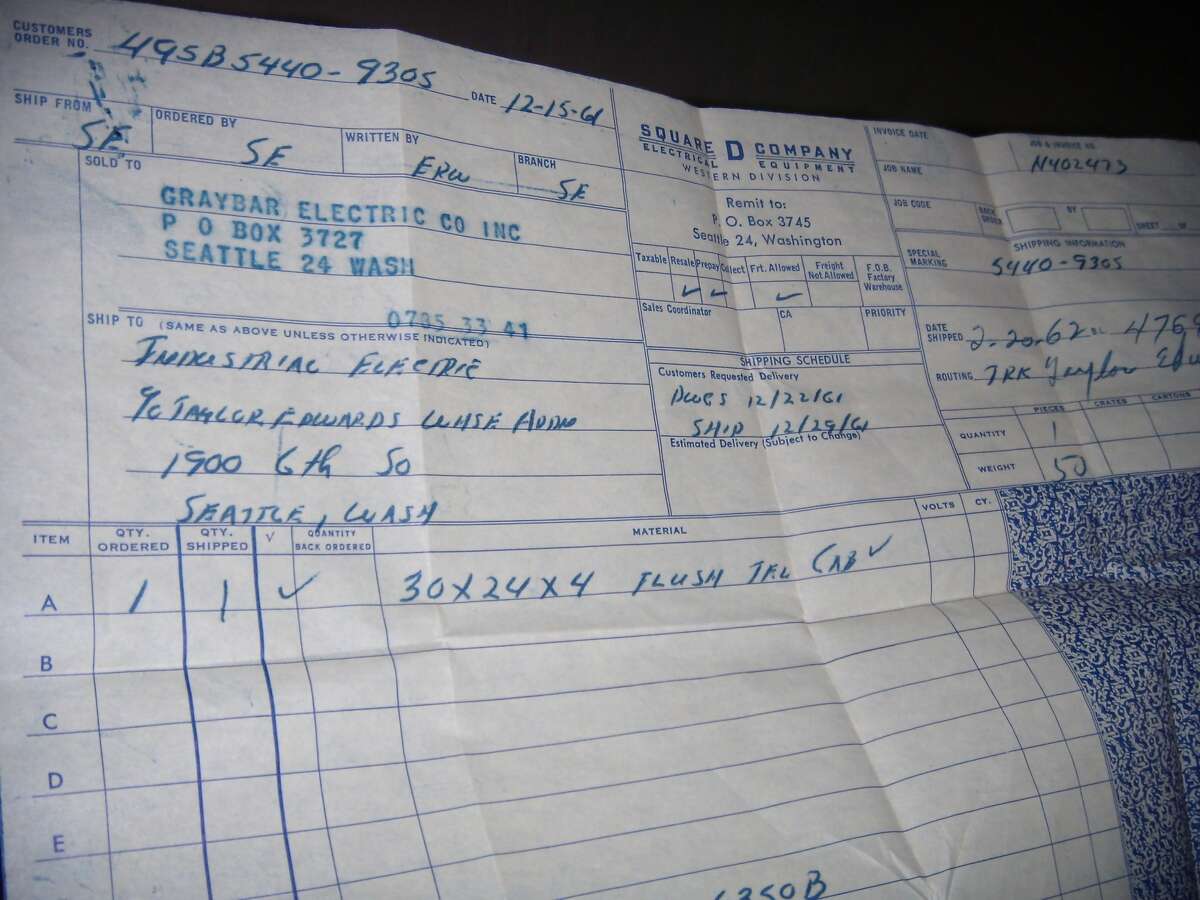 CUSTOMERS ORDER NO. 495B5440-9305 DATE 12-15-61
SHIP FROM SE ORDERED BY SE WRITTEN BY ERW BRANCH SE
SOLD TO
GRAYBAR ELECTRIC CO INC
P O BOX 3727
SEATTLE 24 WASH
0785 33 41
SHIP TO (SAME AS ABOVE UNLESS OTHERWISE INDICATED)
INDUSTRIAL ELECTRIC
c/o TAYLOR EDWARDS WHSE
1900 6th SO
SEATTLE, WASH
SQUARE D COMPANY
ELECTRICAL EQUIPMENT
WESTERN DIVISION
Remit to:
P. O. Box 3745
Seattle 24, Washington
Taxable Resale Prepay Collect Frt. Allowed Freight Not Allowed F.O.B. Factory Warehouse
✓ ✓ ✓
Sales Coordinator CA PRIORITY
SHIPPING SCHEDULE
Customers Requested Delivery
DWGS 12/22/61
SHIP 12/29/61
Estimated Delivery (Subject to Change)
INVOICE DATE JOB & INVOICE NO. N402473
JOB NAME
JOB CODE BACK ORDER BY SHEET OF
SHIPPING INFORMATION
SPECIAL MARKING 5440-9305
DATE SHIPPED 2-20-62
ROUTING TRK Taylor
PIECES CRATES CARTONS
QUANTITY 1
WEIGHT 50
ITEM QTY. ORDERED QTY. SHIPPED ✓ QUANTITY BACK ORDERED MATERIAL VOLTS CY.
A 1 1 ✓ 30X24X4 FLUSH TEL CAB ✓
B
C
D
E
6350B